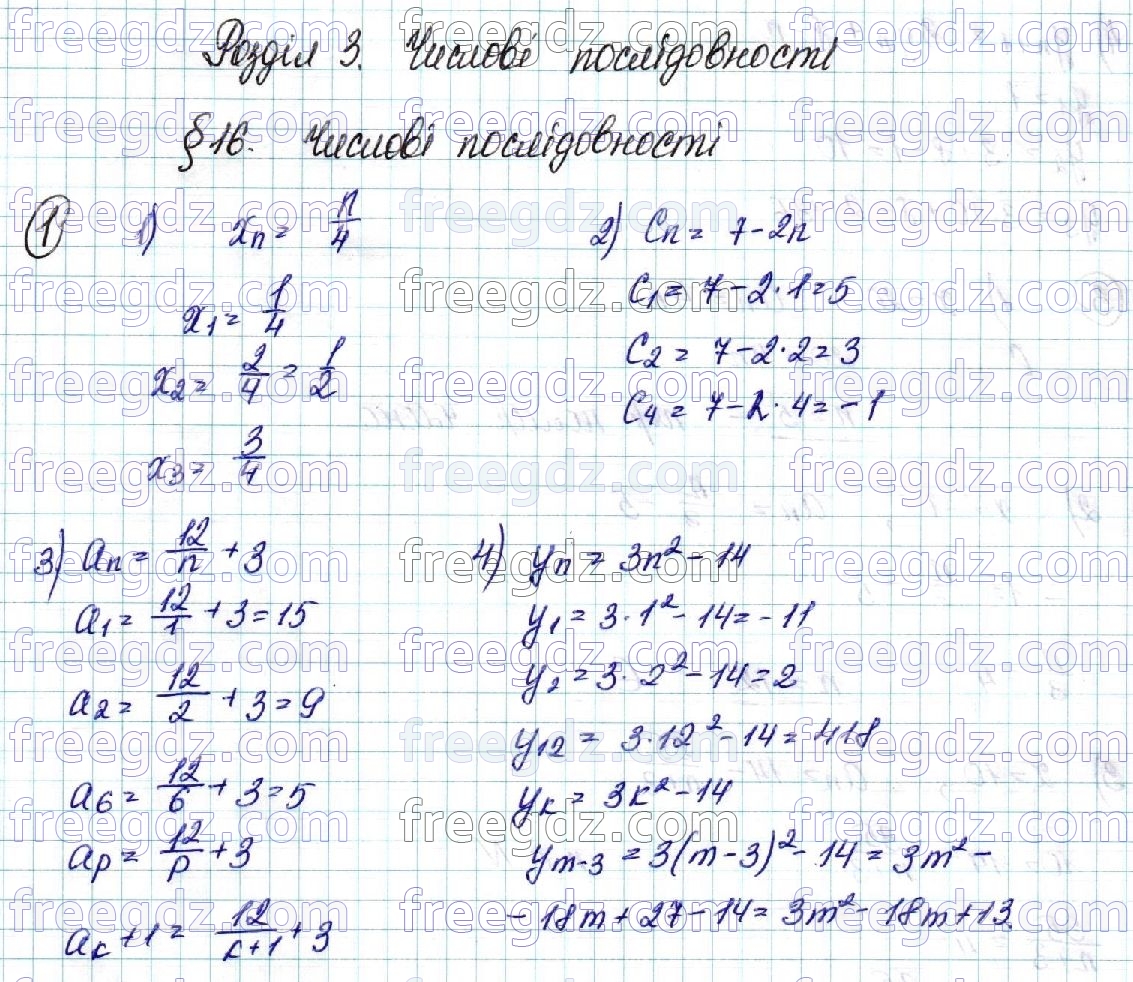 Розділ 3. Числові послідовності
§16. Числові послідовності
① 1) xₙ = n/4
x₁ = 1/4
x₂ = 2/4 = 1/2
x₃ = 3/4
2) Cₙ = 7 - 2n
C₁ = 7 - 2·1 = 5
C₂ = 7 - 2·2 = 3
C₄ = 7 - 2·4 = -1
3) aₙ = 12/n + 3
a₁ = 12/1 + 3 = 15
a₂ = 12/2 + 3 = 9
a₆ = 12/6 + 3 = 5
aₚ = 12/p + 3
aₖ+1 = 12/(k+1) + 3
4) yₙ = 3n² - 14
y₁ = 3·1² - 14 = -11
y₂ = 3·2² - 14 = 2
y₁₂ = 3·12² - 14 = 418
yₖ = 3k² - 14
yₘ₋₃ = 3(m-3)² - 14 = 3m² -
- 18m + 27 - 14 = 3m² - 18m + 13.
freegdz.com